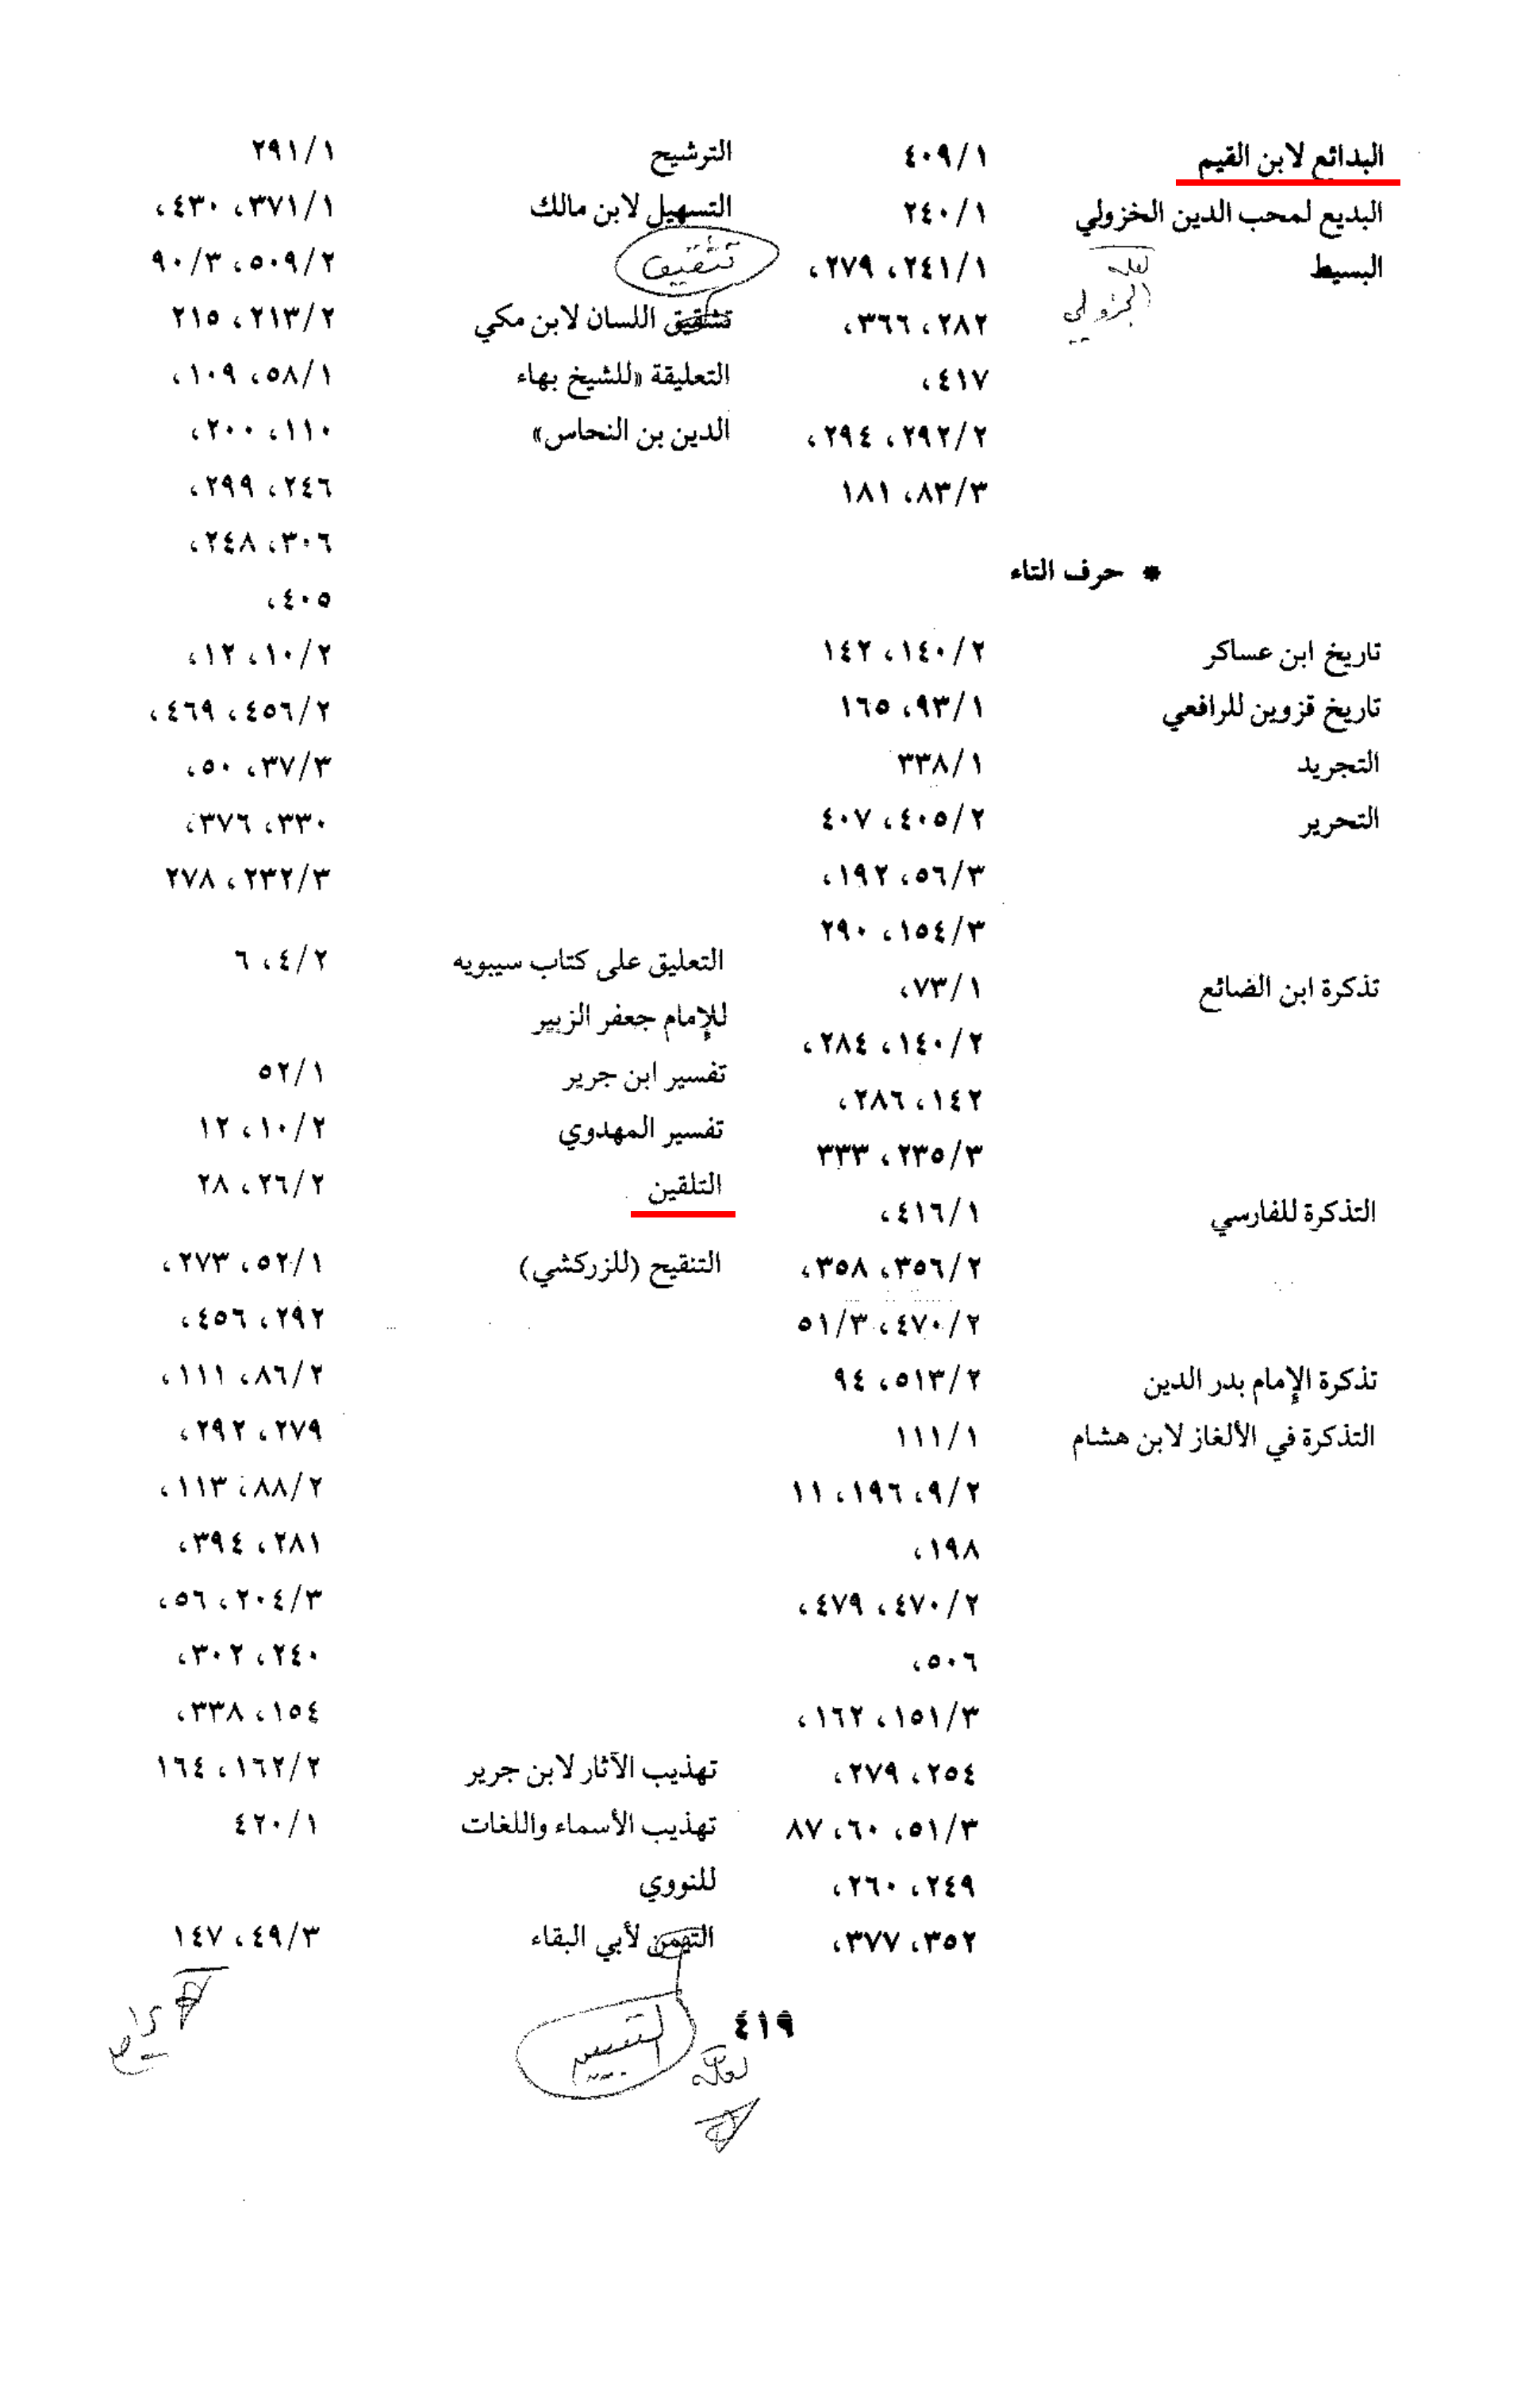 البدائع لابن القيم ٤٠٩/١
البديع لمحب الدين الخزولي ٢٤٠/١
لعله
الجزولي
البسيط ٢٤١/١، ٢٧٩،
٢٨٢، ٣٦٦،
٤١٧،
٢٩٢/٢، ٢٩٤،
٨٣/٣، ١٨١
* حرف التاء
تاريخ ابن عساكر ١٤٠/٢، ١٤٢
تاريخ قزوين للرافعي ٩٣/١، ١٦٥
التجريد ٣٣٨/١
التحرير ٤٠٥/٢، ٤٠٧
٥٦/٣، ١٩٢،
١٥٤/٣، ٢٩٠
تذكرة ابن الضائع ٧٣/١،
١٤٠/٢، ٢٨٤،
١٤٢، ٢٨٦،
٢٣٥/٣، ٣٣٣
التذكرة للفارسي ٤١٦/١،
٣٥٦/٢، ٣٥٨،
٤٧٠/٢، ٥١/٣
تذكرة الإمام بدر الدين ٥١٣/٢، ٩٤
التذكرة في الألغاز لابن هشام ١١١/١
٩/٢، ١٩٦، ١١
١٩٨،
٤٧٠/٢، ٤٧٩،
٥٠٦،
١٥١/٣، ١٦٢،
٢٥٤، ٢٧٩،
٥١/٣، ٦٠، ٨٧
٢٤٩، ٢٦٠،
٣٥٢، ٣٧٧،
الترشيح ٢٩١/١
التسهيل لابن مالك ٣٧١/١، ٤٣٠،
٥٠٩/٢، ٩٠/٣
تثقيف
تشقيق اللسان لابن مكي ٢١٣/٢، ٢١٥
التعليقة «للشيخ بهاء ٥٨/١، ١٠٩،
الدين بن النحاس» ١١٠، ٢٠٠،
٢٤٦، ٢٩٩،
٣٠٦، ٢٤٨،
٤٠٥،
١٠/٢، ١٢،
٤٥٦/٢، ٤٦٩،
٣٧/٣، ٥٠،
٣٣٠، ٣٧٦،
٢٣٢/٣، ٢٧٨
التعليق على كتاب سيبويه ٤/٢، ٦
للإمام جعفر الزبير
تفسير ابن جرير ٥٢/١
تفسير المهدوي ١٠/٢، ١٢
التلقين ٢٦/٢، ٢٨
التنقيح (للزركشي) ٥٢/١، ٢٧٣،
٢٩٢، ٤٥٦،
٨٦/٢، ١١١،
٢٧٩، ٢٩٢،
٨٨/٢، ١١٣،
٢٨١، ٣٩٤،
٢٠٤/٣، ٥٦،
٢٤٠، ٣٠٢،
١٥٤، ٣٣٨،
تهذيب الآثار لابن جرير ١٦٢/٢، ١٦٤
تهذيب الأسماء واللغات ٤٢٠/١
للنووي
التيمن لأبي البقاء ٤٩/٣، ١٤٧
٤١٩
لعله